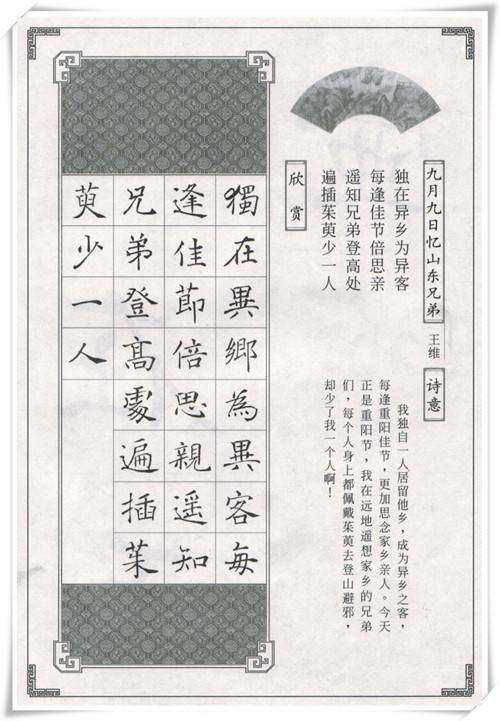 九月九日忆山东兄弟 王维
独在异乡为异客
每逢佳节倍思亲
遥知兄弟登高处
遍插茱萸少一人
诗意
我独自一人居留他乡，成为异乡之客，
每逢重阳佳节，更加思念家乡亲人。今天
正是重阳节，我在远地遥想家乡的兄弟
们，每个人身上都佩戴茱萸去登山避邪，
却少了我一个人啊！
欣赏
獨在異鄉為異客每
逢佳節倍思親遥知
兄弟登高處遍插茱
萸少一人